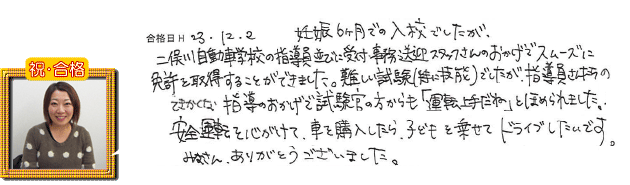 合格日 H 23.12.2 妊娠6ヶ月での入校でしたが、
二俣川自動車学校の指導員並びに受付事務送迎スタッフさんのおかげでスムーズに
免許を取得することができました。難しい試験(特に技能)でしたが指導員さんたちの
きめ細かい指導のおかげで試験官の方からも「運転上手だね」とほめられました。
安全運転を心がけて、車を購入したら、子どもを乗せてドライブしたいです。
みなさん、ありがとうございました。
祝・合格